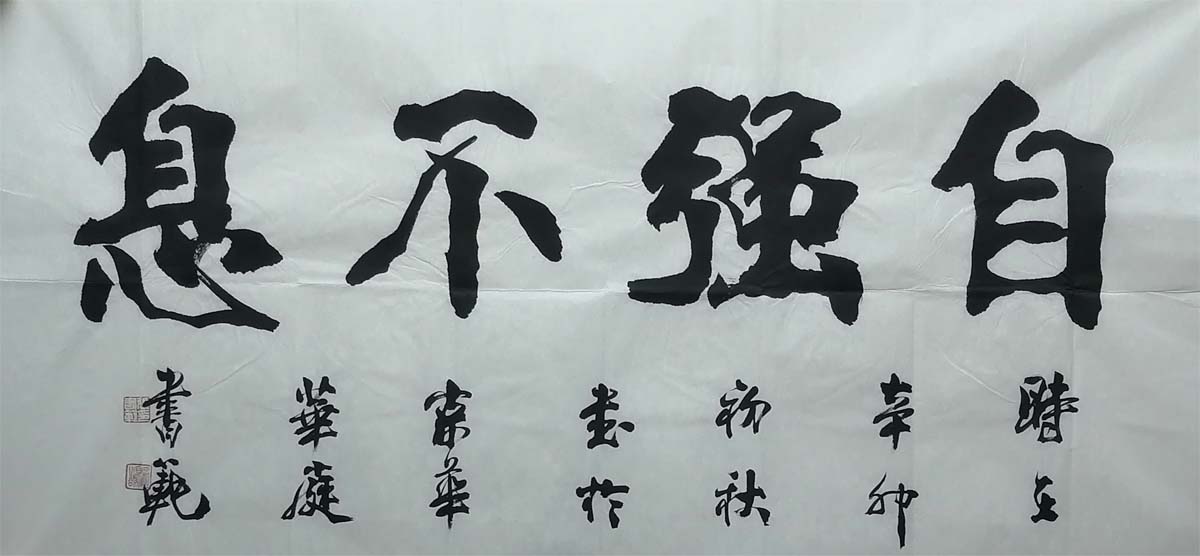 自强不息
時在
辛卯
初秋
書於
京華
華庭
書範